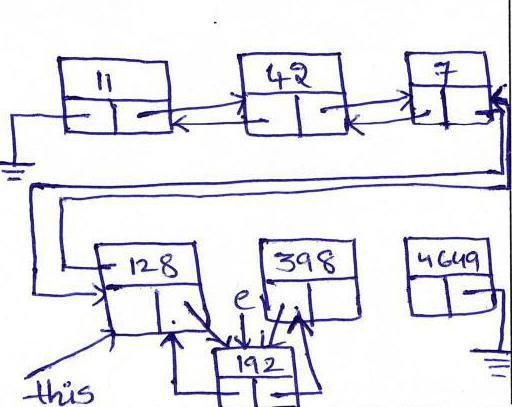 11 42 7
128 398 4649
e
192
this